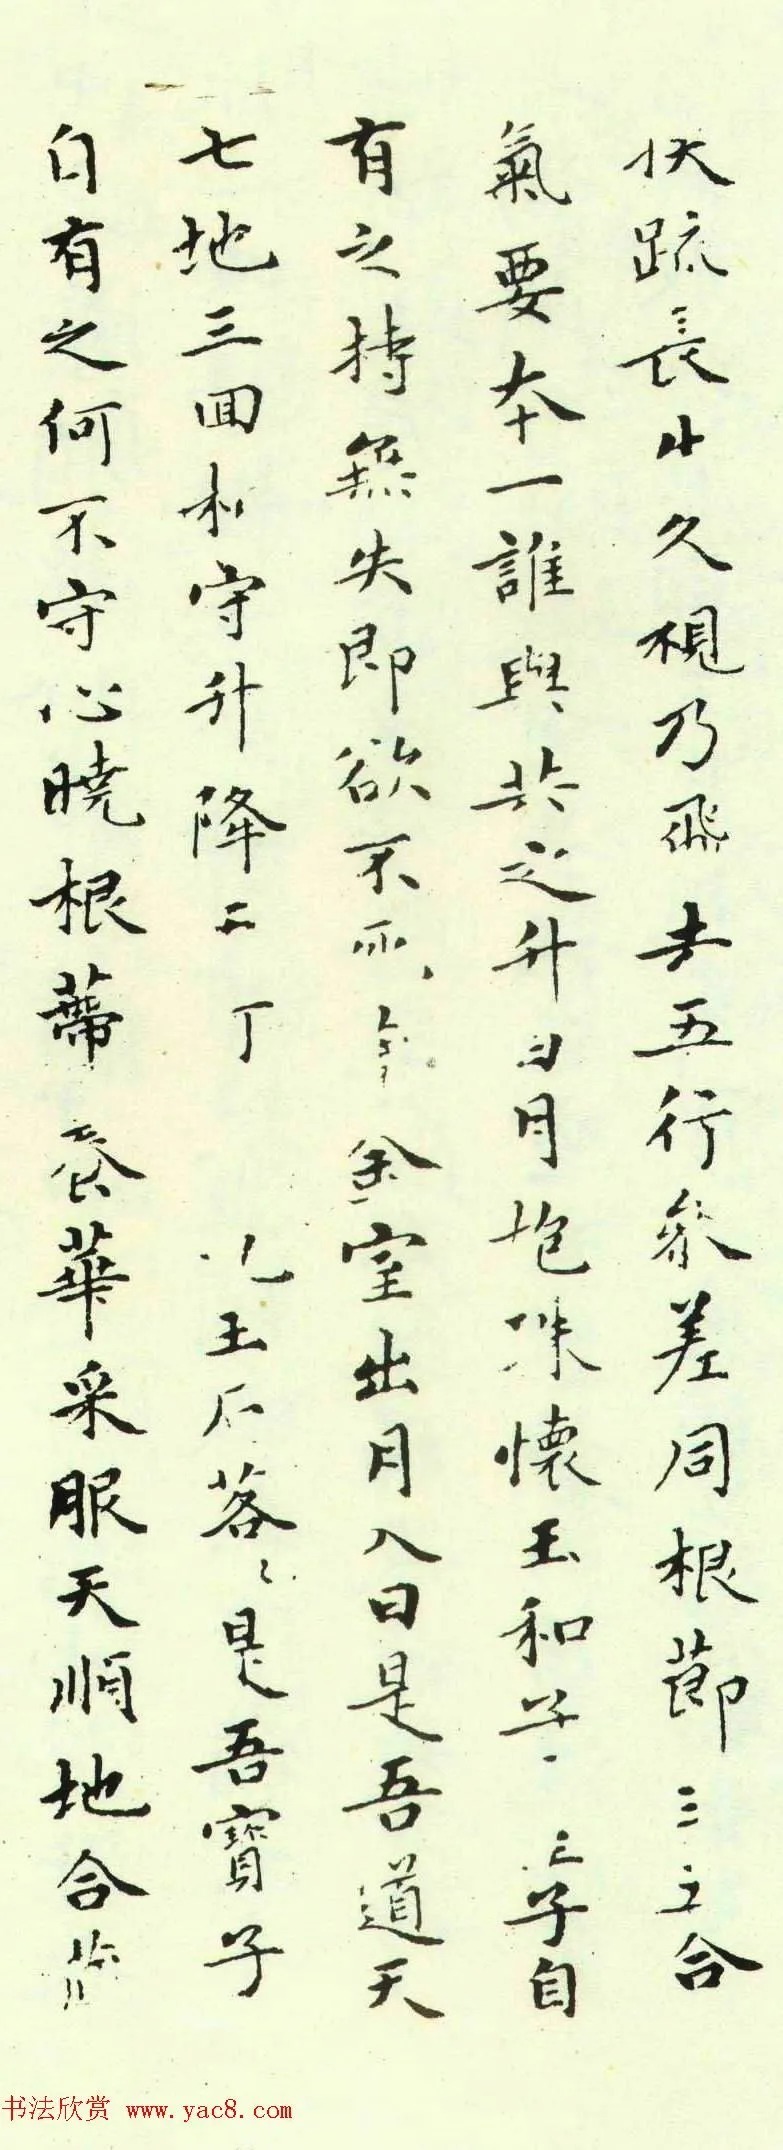 伏疏長生久視乃飛去五行參差同根節三五合
氣要本一誰與共之升日月抱珠懷玉和子 子自
有之持無失即欲不死 金室出月入日是吾道天
七地三回相守升降 玉石落〻是吾寶子
自有之何不守心曉根蒂養華采服天順地合
书法欣赏 www.yac8.com